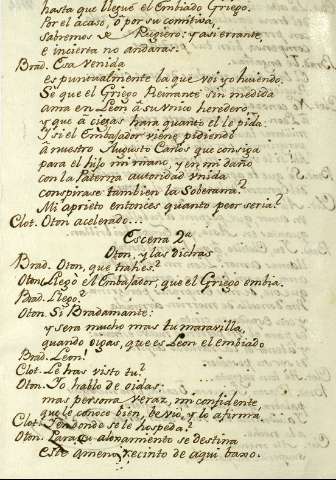 hasta que llegue el Embiado Griego.
Por el acaso, ô por su comitiva,
sabremos de Rugiero: y asi errante,
e incierta no andaras.
Brad. Esa venida
es puntualmente la que voi yo huiendo.
Sè que el Griego Reinante sin medida
ama en Leon â su vnico heredero,
y que â ciegas hara quanto èl le pida.
Y si el Embajador viene pidiendo
â nuestro Augusto Carlos que consiga
para el hijo mi mano, y en mi daño
con la Paterna autoridad vnida
conspirase tambien la Soberana?
Mi aprieto entonces quanto peor seria?
Clot. Oton acelerado...
Escena 2ª
Oton, y las dichas
Brad. Oton, que trahes?
Oton. Llegò el Embajador, que el Griego embia.
Brad. Llegò?
Oton. Si Bradamante:
y sera mucho mas tu maravilla,
quando oigas, que es Leon el embiado
Brad. Leon!
Clot. Le has visto tu?
Oton. Yo hablo de oidas:
mas persona veraz, mi confidente,
que le conoce bien, le viò, y lo afirma.
Clot. Y en donde se le hospeda?
Oton. Para su alojamiento se destina
este ameno recinto de aqui baxo.